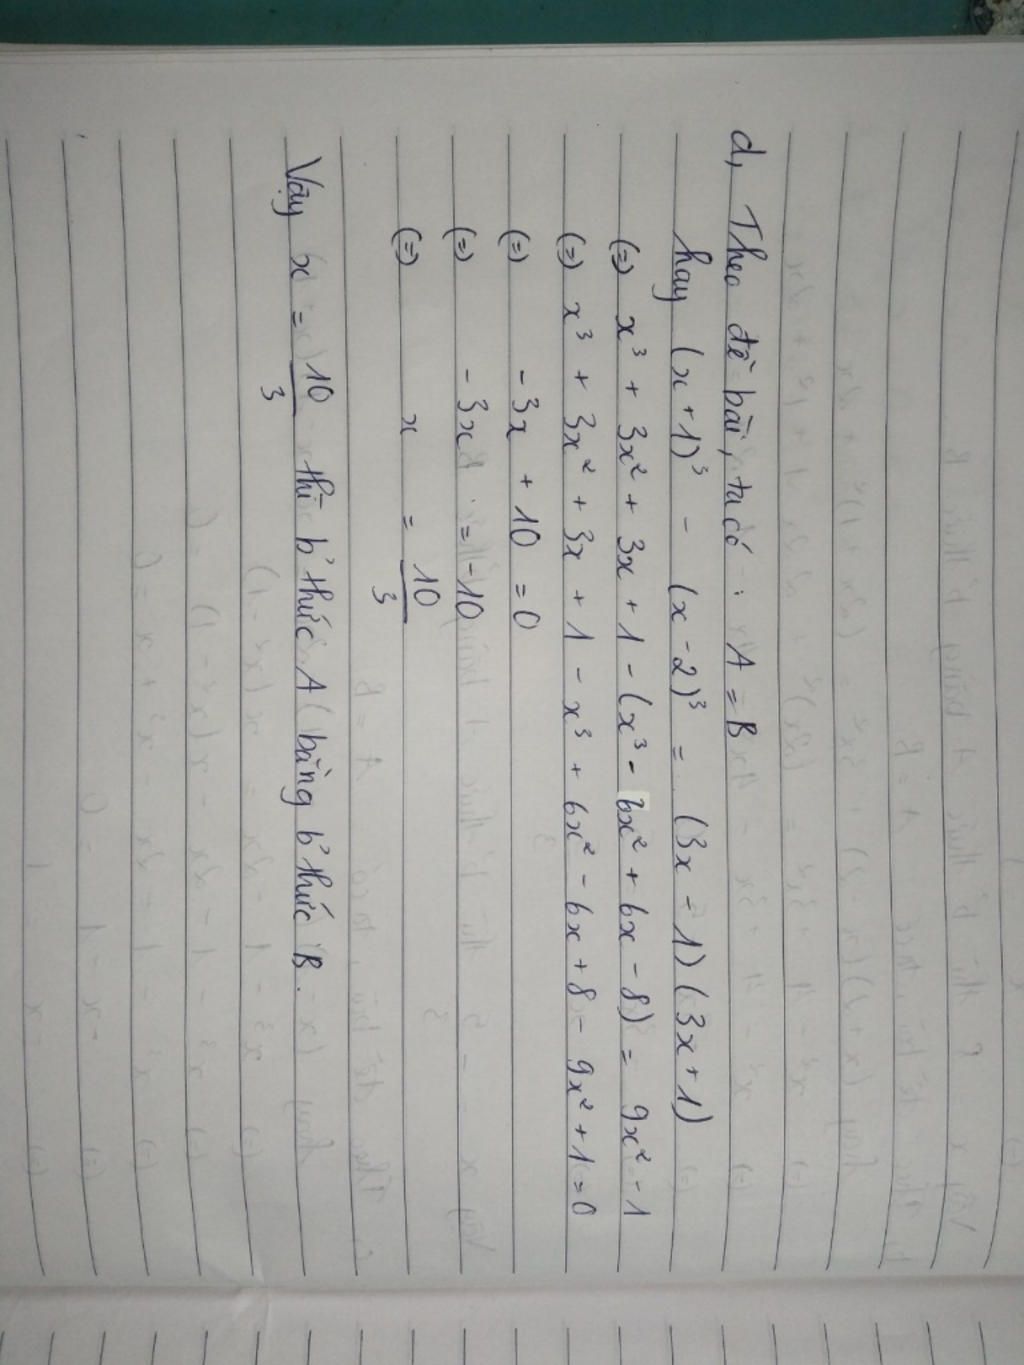 d, Theo đề bài, ta có : A = B
hay (x+1)³ - (x-2)³ = (3x-1)(3x+1)
(=) x³ + 3x² + 3x + 1 - (x³ - 6x² + 6x - 8) = 9x² - 1
(=) x³ + 3x² + 3x + 1 - x³ + 6x² - 6x + 8 - 9x² + 1 = 0
(=) - 3x + 10 = 0
(=) - 3x = - 10
(=) x = 10/3
Vậy x = 10/3 thì b' thức A bằng b' thức B.